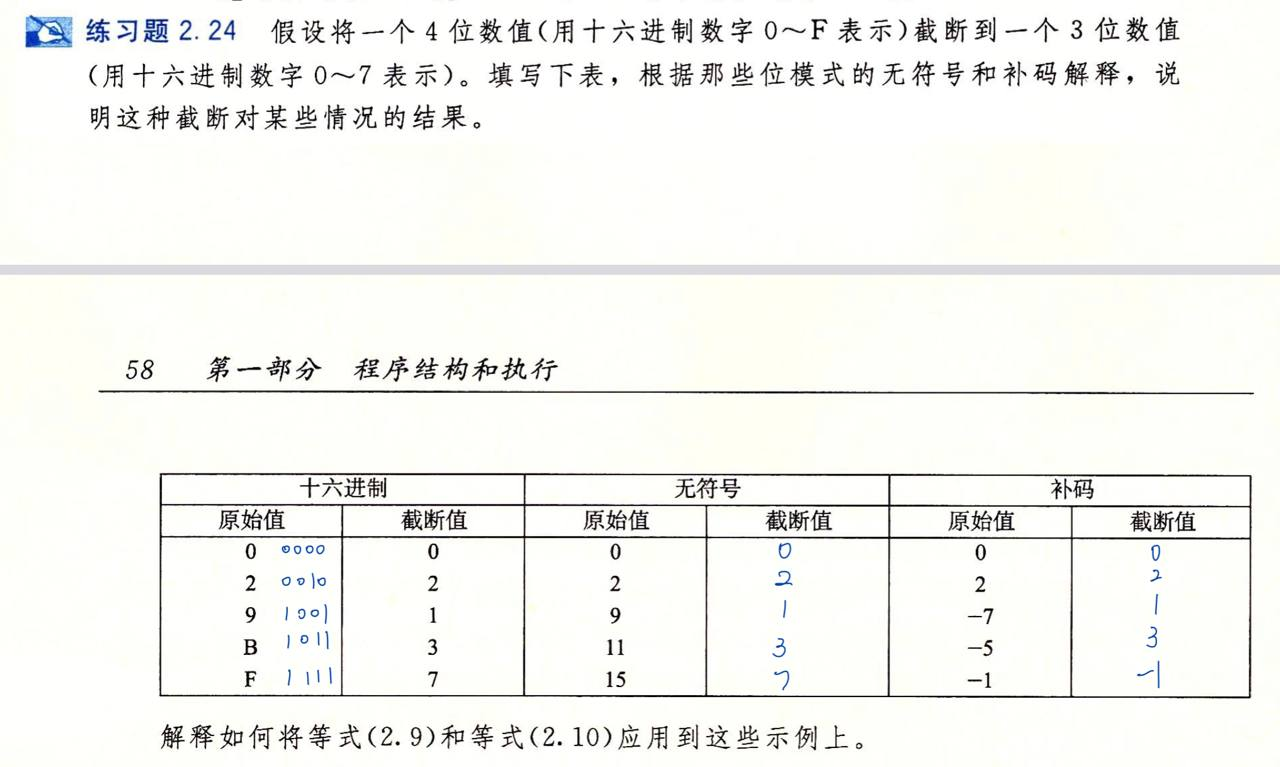 练习题 2.24 假设将一个 4 位数值(用十六进制数字 0～F 表示)截断到一个 3 位数值
(用十六进制数字 0～7 表示)。填写下表，根据那些位模式的无符号和补码解释，说
明这种截断对某些情况的结果。
58 第一部分 程序结构和执行
十六进制 无符号 补码
原始值 截断值 原始值 截断值 原始值 截断值
0 0000 0 0 0 0 0
2 0010 2 2 2 2 2
9 1001 1 9 1 -7 1
B 1011 3 11 3 -5 3
F 1111 7 15 7 -1 -1
解释如何将等式(2.9)和等式(2.10)应用到这些示例上。